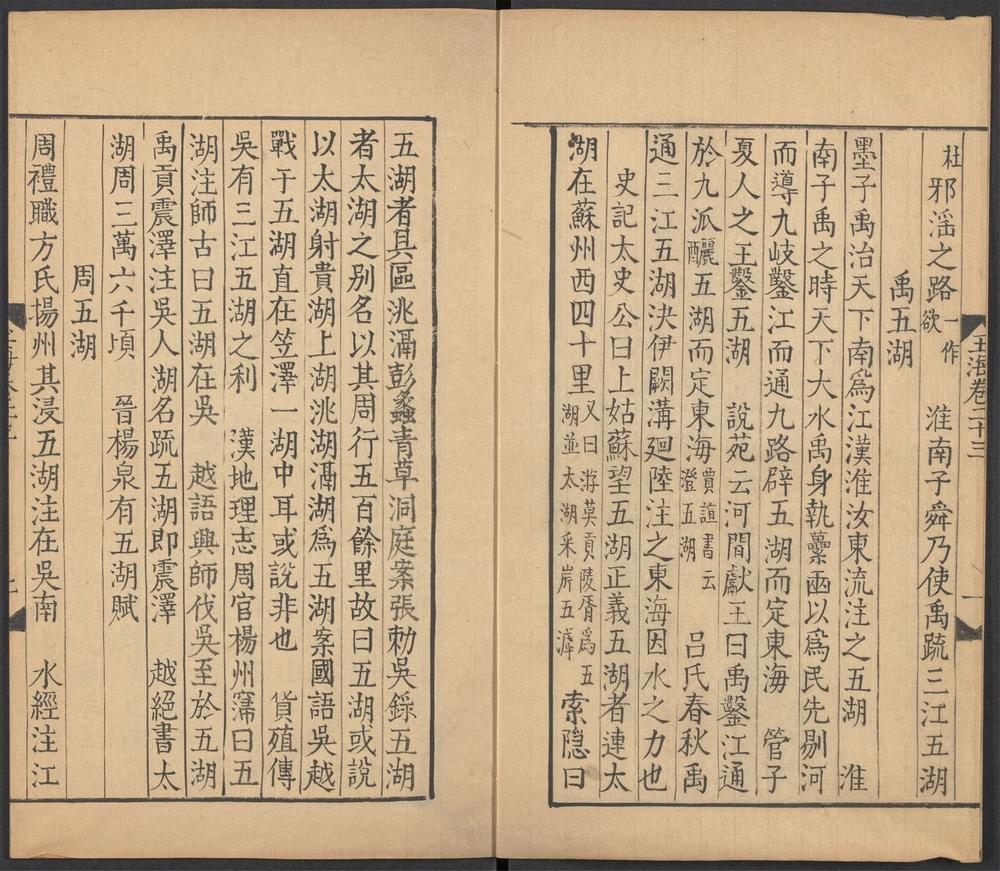 玉海卷二十三
一
杜邪淫之路一作欲　淮南子舜乃使禹疏三江五湖
禹五湖
墨子禹治天下南爲江漢淮汝東流注之五湖　淮
南子禹之時天下大水禹身執虆臿以爲民先剔河
而導九岐鑿江而通九路辟五湖而定東海　管子
夏人之王鑿五湖　說苑云河間獻王曰禹鑿江通
於九派釃五湖而定東海賈誼書云澄五湖　呂氏春秋禹
通三江五湖決伊闕溝廻陸注之東海因水之力也
史記太史公曰上姑蘇望五湖正義五湖者連太
湖在蘇州西四十里又曰游莫貢陵胥爲五湖並太湖采岸五溠　索隱曰
五湖者具區洮滆彭蠡青草洞庭案張勃吳錄五湖
者太湖之别名以其周行五百餘里故曰五湖或說
以太湖射貴湖上湖洮湖滆湖爲五湖案國語吳越
戰于五湖直在笠澤一湖中耳或說非也　貨殖傳
吳有三江五湖之利　漢地理志周官楊州藪曰五
湖注師古曰五湖在吳　越語興師伐吳至於五湖
禹貢震澤注吳人湖名疏五湖即震澤　越絕書太
湖周三萬六千頃　晉楊泉有五湖賦
周五湖
周禮職方氏揚州其浸五湖注在吳南　水經注江